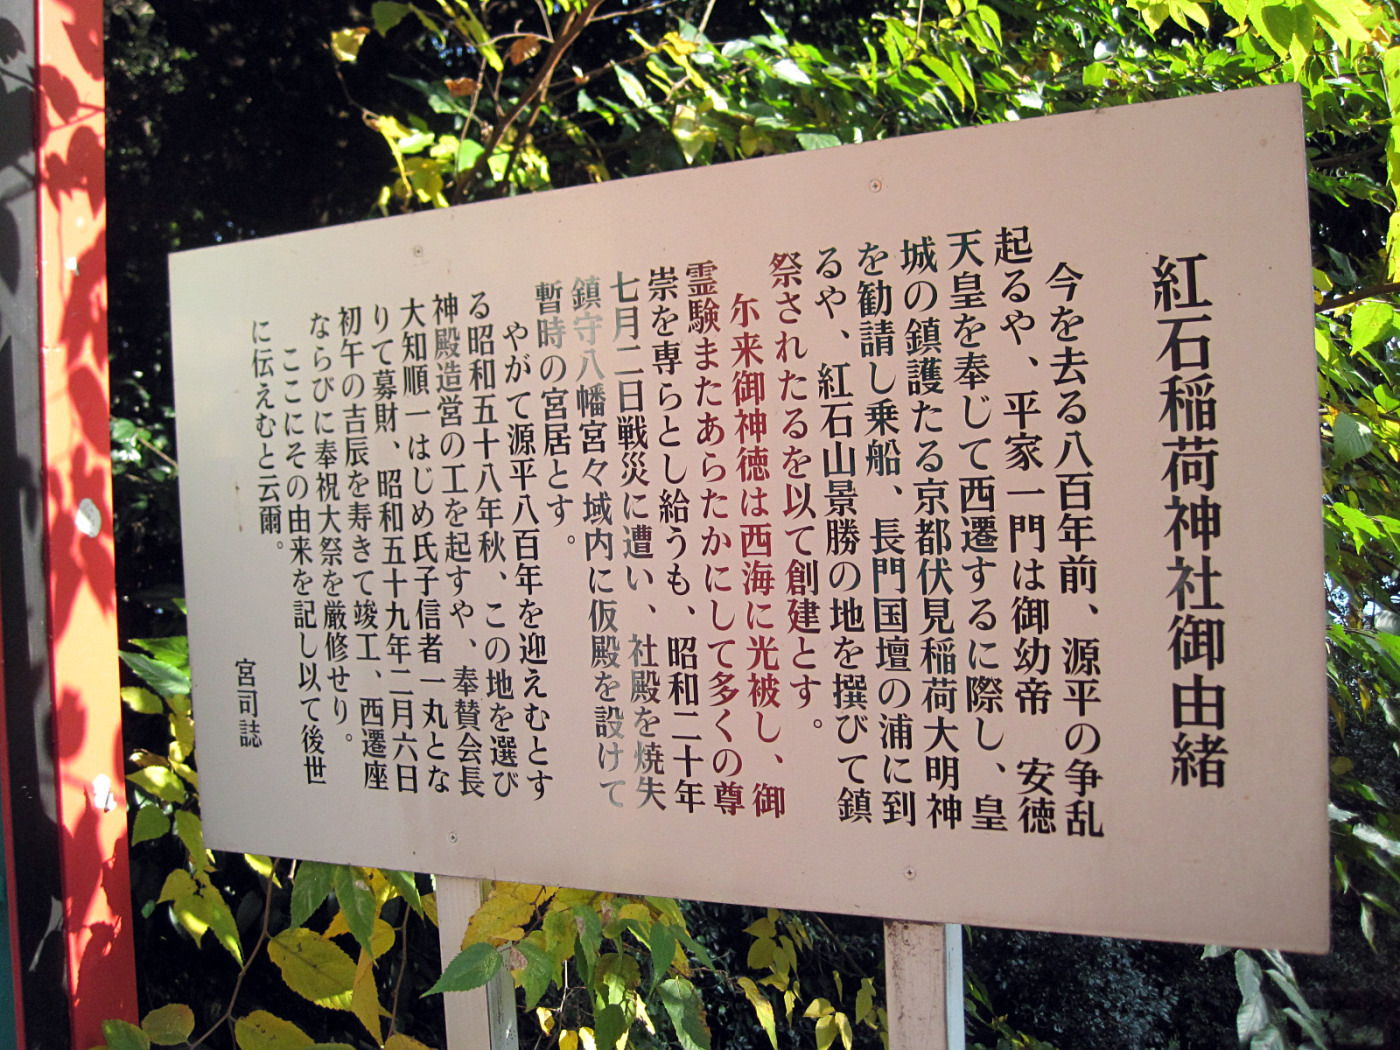 紅石稲荷神社御由緒
今を去る八百年前、源平の争乱
起るや、平家一門は御幼帝　安徳
天皇を奉じて西遷するに際し、皇
城の鎮護たる京都伏見稲荷大明神
を勧請し乗船、長門国壇の浦に到
るや、紅石山景勝の地を撰びて鎮
祭されたるを以て創建とす。
尓来御神徳は西海に光被し、御
霊験またあらたかにして多くの尊
崇を専らとし給うも、昭和二十年
七月二日戦災に遭い、社殿を焼失
鎮守八幡宮々域内に仮殿を設けて
暫時の宮居とす。
やがて源平八百年を迎えむとす
る昭和五十八年秋、この地を選び
神殿造営の工を起すや、奉賛会長
大知順一はじめ氏子信者一丸とな
りて募財、昭和五十九年二月六日
初午の吉辰を寿きて竣工、西遷座
ならびに奉祝大祭を厳修せり。
ここにその由来を記し以て後世
に伝えむと云爾。
宮司誌